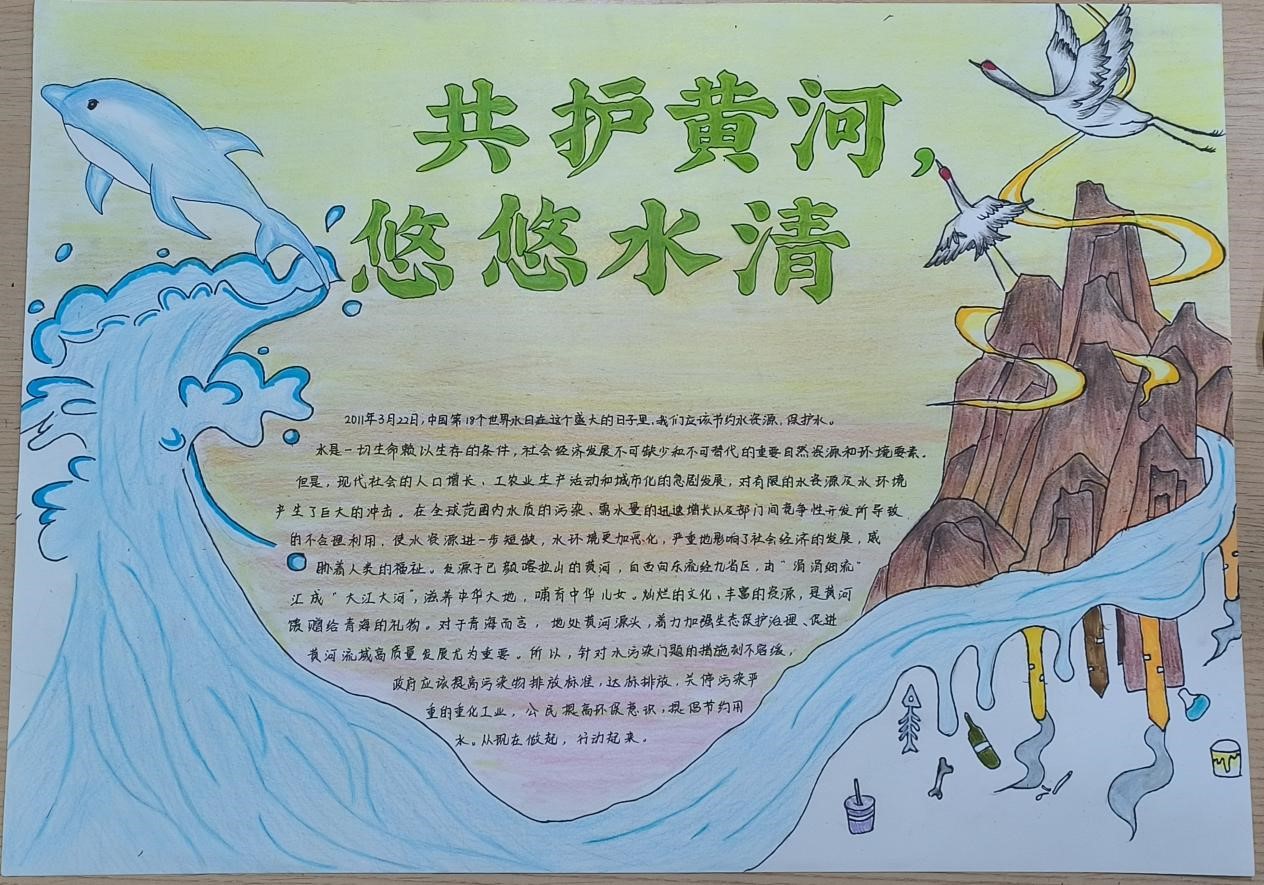 共护黄河，
悠悠水清
2011年3月22日，中国第19个世界水日在这个盛大的日子里，我们应该节约水资源，保护水。
水是一切生命赖以生存的条件，社会经济发展不可缺少和不可替代的重要自然资源和环境要素。
但是，现代社会的人口增长、工农业生产活动和城市化的急剧发展，对有限的水资源及水环境
产生了巨大的冲击。在全球范围内水质的污染、需水量的迅速增长以及部门间竞争性开发所导致
的不合理利用，使水资源进一步短缺，水环境更加恶化，严重地影响了社会经济的发展，威
胁着人类的福祉。发源于巴颜喀拉山的黄河，自西向东流经九省区，由“涓涓细流”
汇成“大江大河”，滋养中华大地，哺育中华儿女。灿烂的文化、丰富的资源，是黄河
馈赠给青海的礼物。对于青海而言，地处黄河源头，着力加强生态保护治理、促进
黄河流域高质量发展尤为重要。所以，针对水污染问题的措施刻不容缓，
政府应该提高污染物排放标准，达标排放，关停污染严
重的重化工业，公民提高环保意识，提倡节约用
水。从现在做起，行动起来。